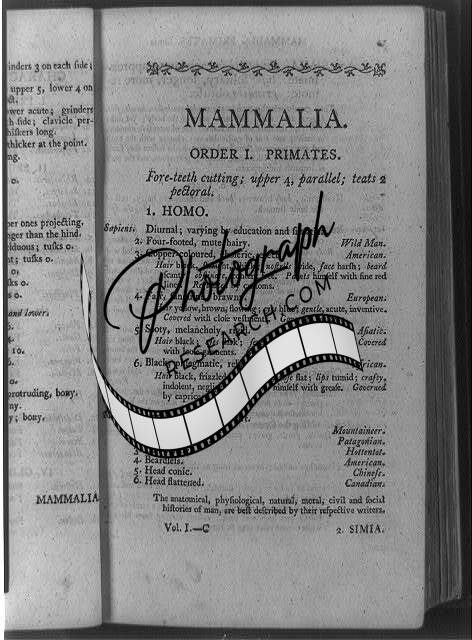 inders 3 on each ſide;
upper 5, lower 4 on
wer acute; grinders
h ſide; clavicle per-
hiſkers long.
thicker at the point.
ng.
o.
per ones projecting.
nger than the hind.
iduous; tuſks 0.
t; tuſks 0.
o.
ks 0.
o.
and lower:
4.
10.
6.
o.
protruding, bony.
ny.
y; bony.
MAMMALIA
MAMMALIA.
ORDER I. PRIMATES.
Fore-teeth cutting; upper 4, parallel; teats 2
pectoral.
1. HOMO.
Sapiens. Diurnal; varying by education and
2. Four-footed, mute, hairy. Wild Man.
3. Copper-coloured, American.
Hair black, wide, face harſh; beard
himſelf with fine red
lines. cuſtoms.
4. Fair, brawny. European.
Hair yellow, brown, flowing; eyes blue; gentle, acute, inventive.
Covered with cloſe veſtments.
5. Sooty, melancholy, Aſiatic.
Hair black; Covered
with looſe garments.
6. Black, phlegmatic,
Hair black, frizzled; flat; lips tumid; crafty,
indolent, himſelf with greaſe. Governed
by caprice.
Photograph
RESEARCH.COM
Mountaineer.
Patagonian.
3. Hottentot.
4. Beardleſs. American.
5. Head conic. Chineſe.
6. Head flattened. Canadian.
The anatomical, phyſiological, natural, moral, civil and ſocial
hiſtories of man, are beſt deſcribed by their reſpective writers.
Vol. I.—C 2. SIMIA.